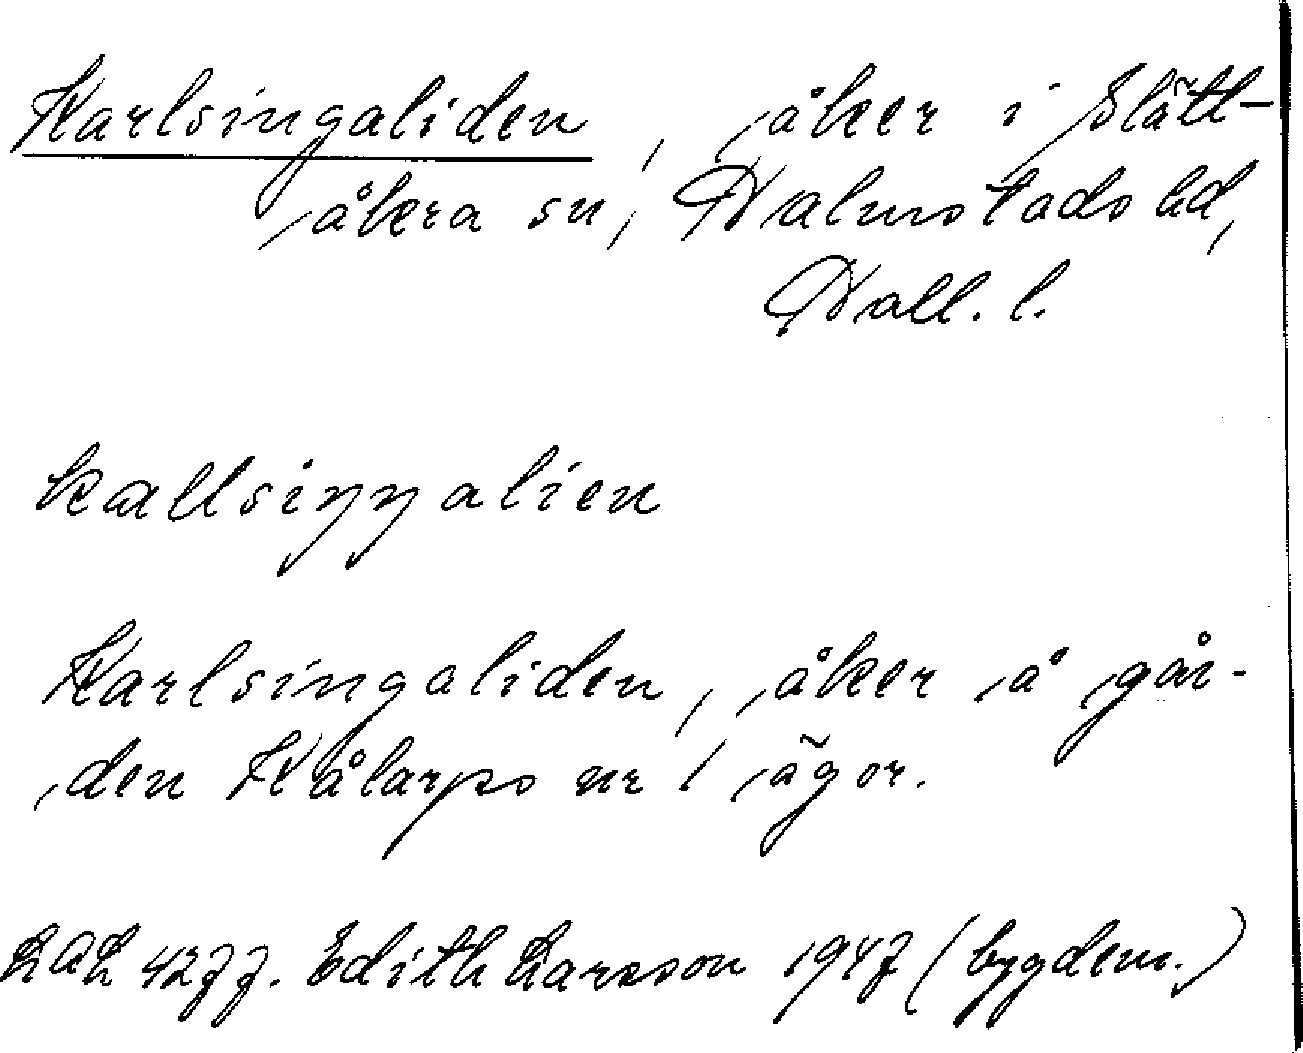 Karlsingaliden, åker i Slätt-
åkra sn, Halmstads hd,
Hall. l.
kallsiŋŋalien
Karlsingaliden, åker å går-
den Kålarps nr 1 ägor.
LAL 4277. Edith Larsson 1947 (bygdem.)